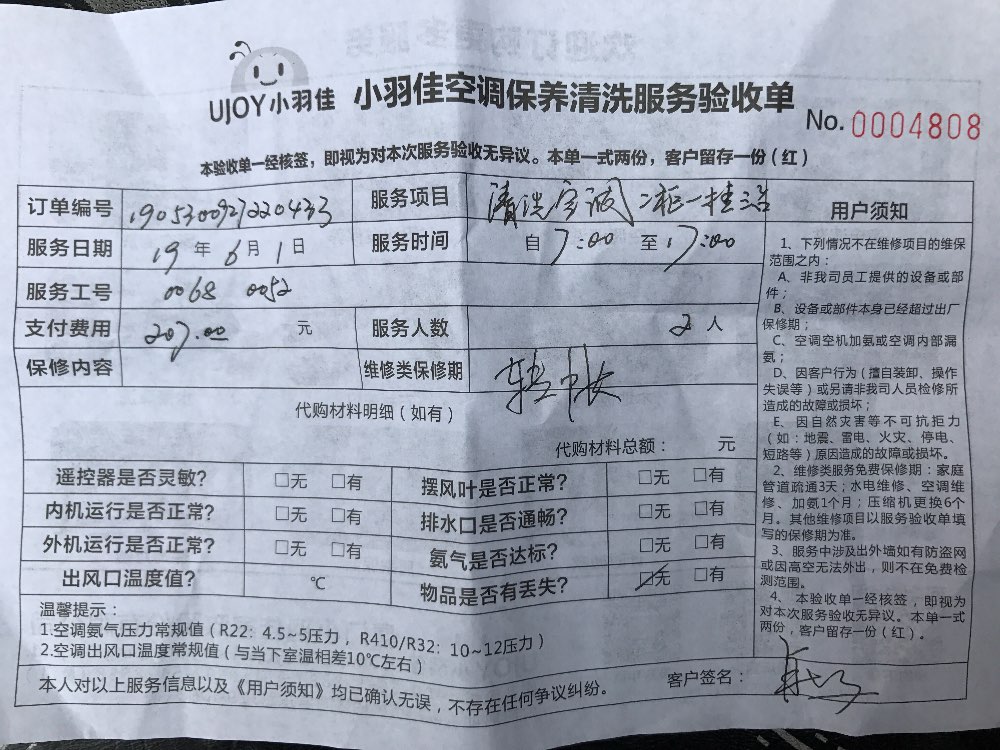 UJOY小羽佳 小羽佳空调保养清洗服务验收单
No. 0004808
本验收单一经核签，即视为对本次服务验收无异议。本单一式两份，客户留存一份（红）
订单编号 190530092720433 服务项目 清洗空调
服务日期 19 年 6 月 1 日 服务时间 自 7:00 至 17:00
服务工号 0068 0052
支付费用 207.00 元 服务人数 2 人
保修内容 维修类保修期
代购材料明细（如有）
代购材料总额： 元
遥控器是否灵敏？ □无 □有 摆风叶是否正常？ □无 □有
内机运行是否正常？ □无 □有 排水口是否通畅？ □无 □有
外机运行是否正常？ □无 □有 氨气是否达标？ □无 □有
出风口温度值？ ℃ 物品是否有丢失？ ☑无 □有
温馨提示：
1.空调氨气压力常规值（R22：4.5~5压力，R410/R32：10~12压力）
2.空调出风口温度常规值（与当下室温相差10℃左右）
本人对以上服务信息以及《用户须知》均已确认无误，不存在任何争议纠纷。 客户签名：
用户须知
1、下列情况不在维修项目的维保
范围之内：
A、非我司员工提供的设备或部
件；
B、设备或部件本身已经超过出厂
保修期；
C、空调空机加氨或空调内部漏
氨；
D、因客户行为（擅自装卸、操作
失误等）或另请非我司人员检修所
造成的故障或损坏；
E、因自然灾害等不可抗拒力
（如：地震、雷电、火灾、停电、
短路等）原因造成的故障或损坏。
2、维修类服务免费保修期：家庭
管道疏通3天；水电维修、空调维
修、加氨1个月；压缩机更换6个
月。其他维修项目以服务验收单填
写的保修期为准。
3、服务中涉及出外墙如有防盗网
或因高空无法外出，则不在免费检
测范围。
4、本验收单一经核签，即视为
对本次服务验收无异议。本单一式
两份，客户留存一份（红）。